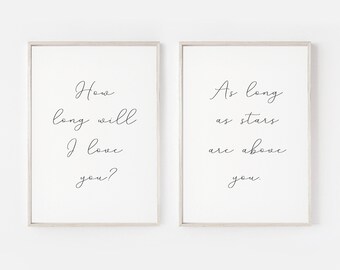 How
long will
I love
you?
As long
as stars
are above
you.